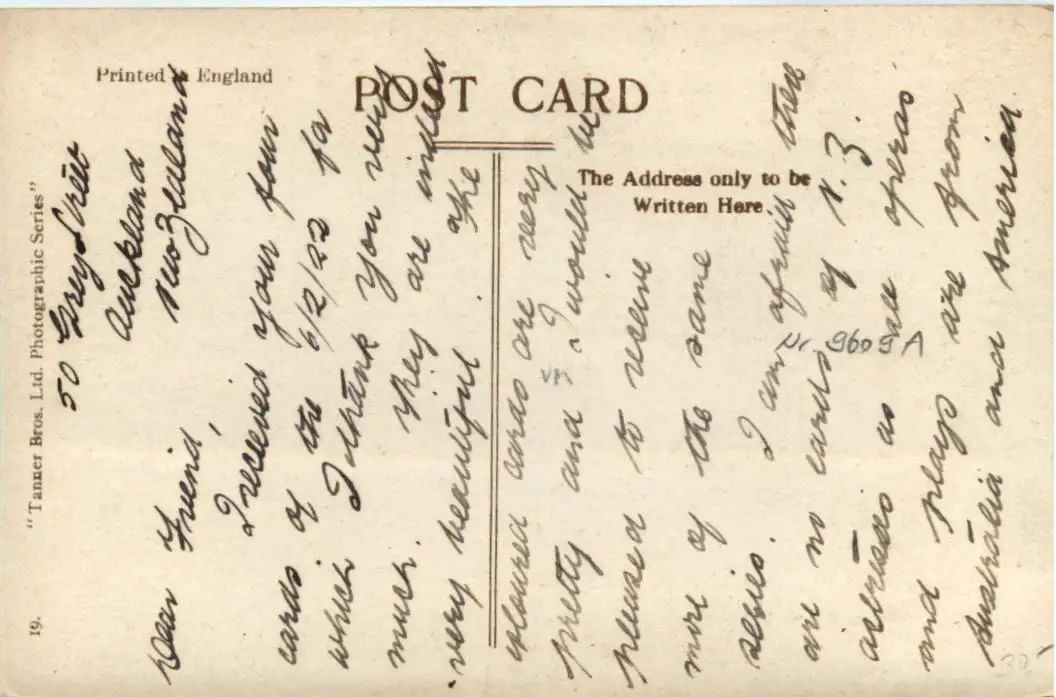 Printed in England
POST CARD
The Address only to be
Written Here.
"Tanner Bros. Ltd. Photographic Series"
19.
50 Grey Street
Auckland
New Zealand
Dear Friend,
I received your four
cards of the 6/2/22 for
which I thank you very
much. They are indeed
very beautiful. The
coloured cards are very
pretty and I would be
pleased to receive
more of the same
series. I am afraid there
are no cards of N.Z.
actresses as all operas
and plays are from
Australia and American
Nr. 9609A